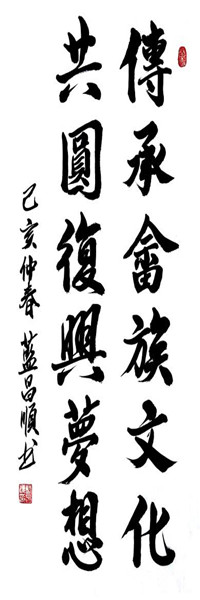 傳承畲族文化
共圓復興夢想
己亥仲春 藍昌順书